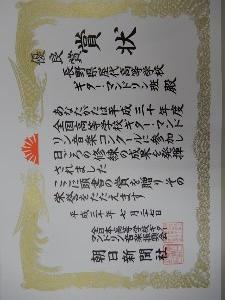 賞状
優良賞
長野県屋代高等学校
ギター・マンドリン班 殿
あなたがたは平成三十年度
全国高等学校ギター・マンド
リン音楽コンクールに参加し
日ごろの修練の成果を発揮
されました
ここに頭書の賞を贈りその
栄誉をたたえます
平成三十年七月二十七日
全日本高等学校ギター・
マンドリン音楽振興会
朝日新聞社